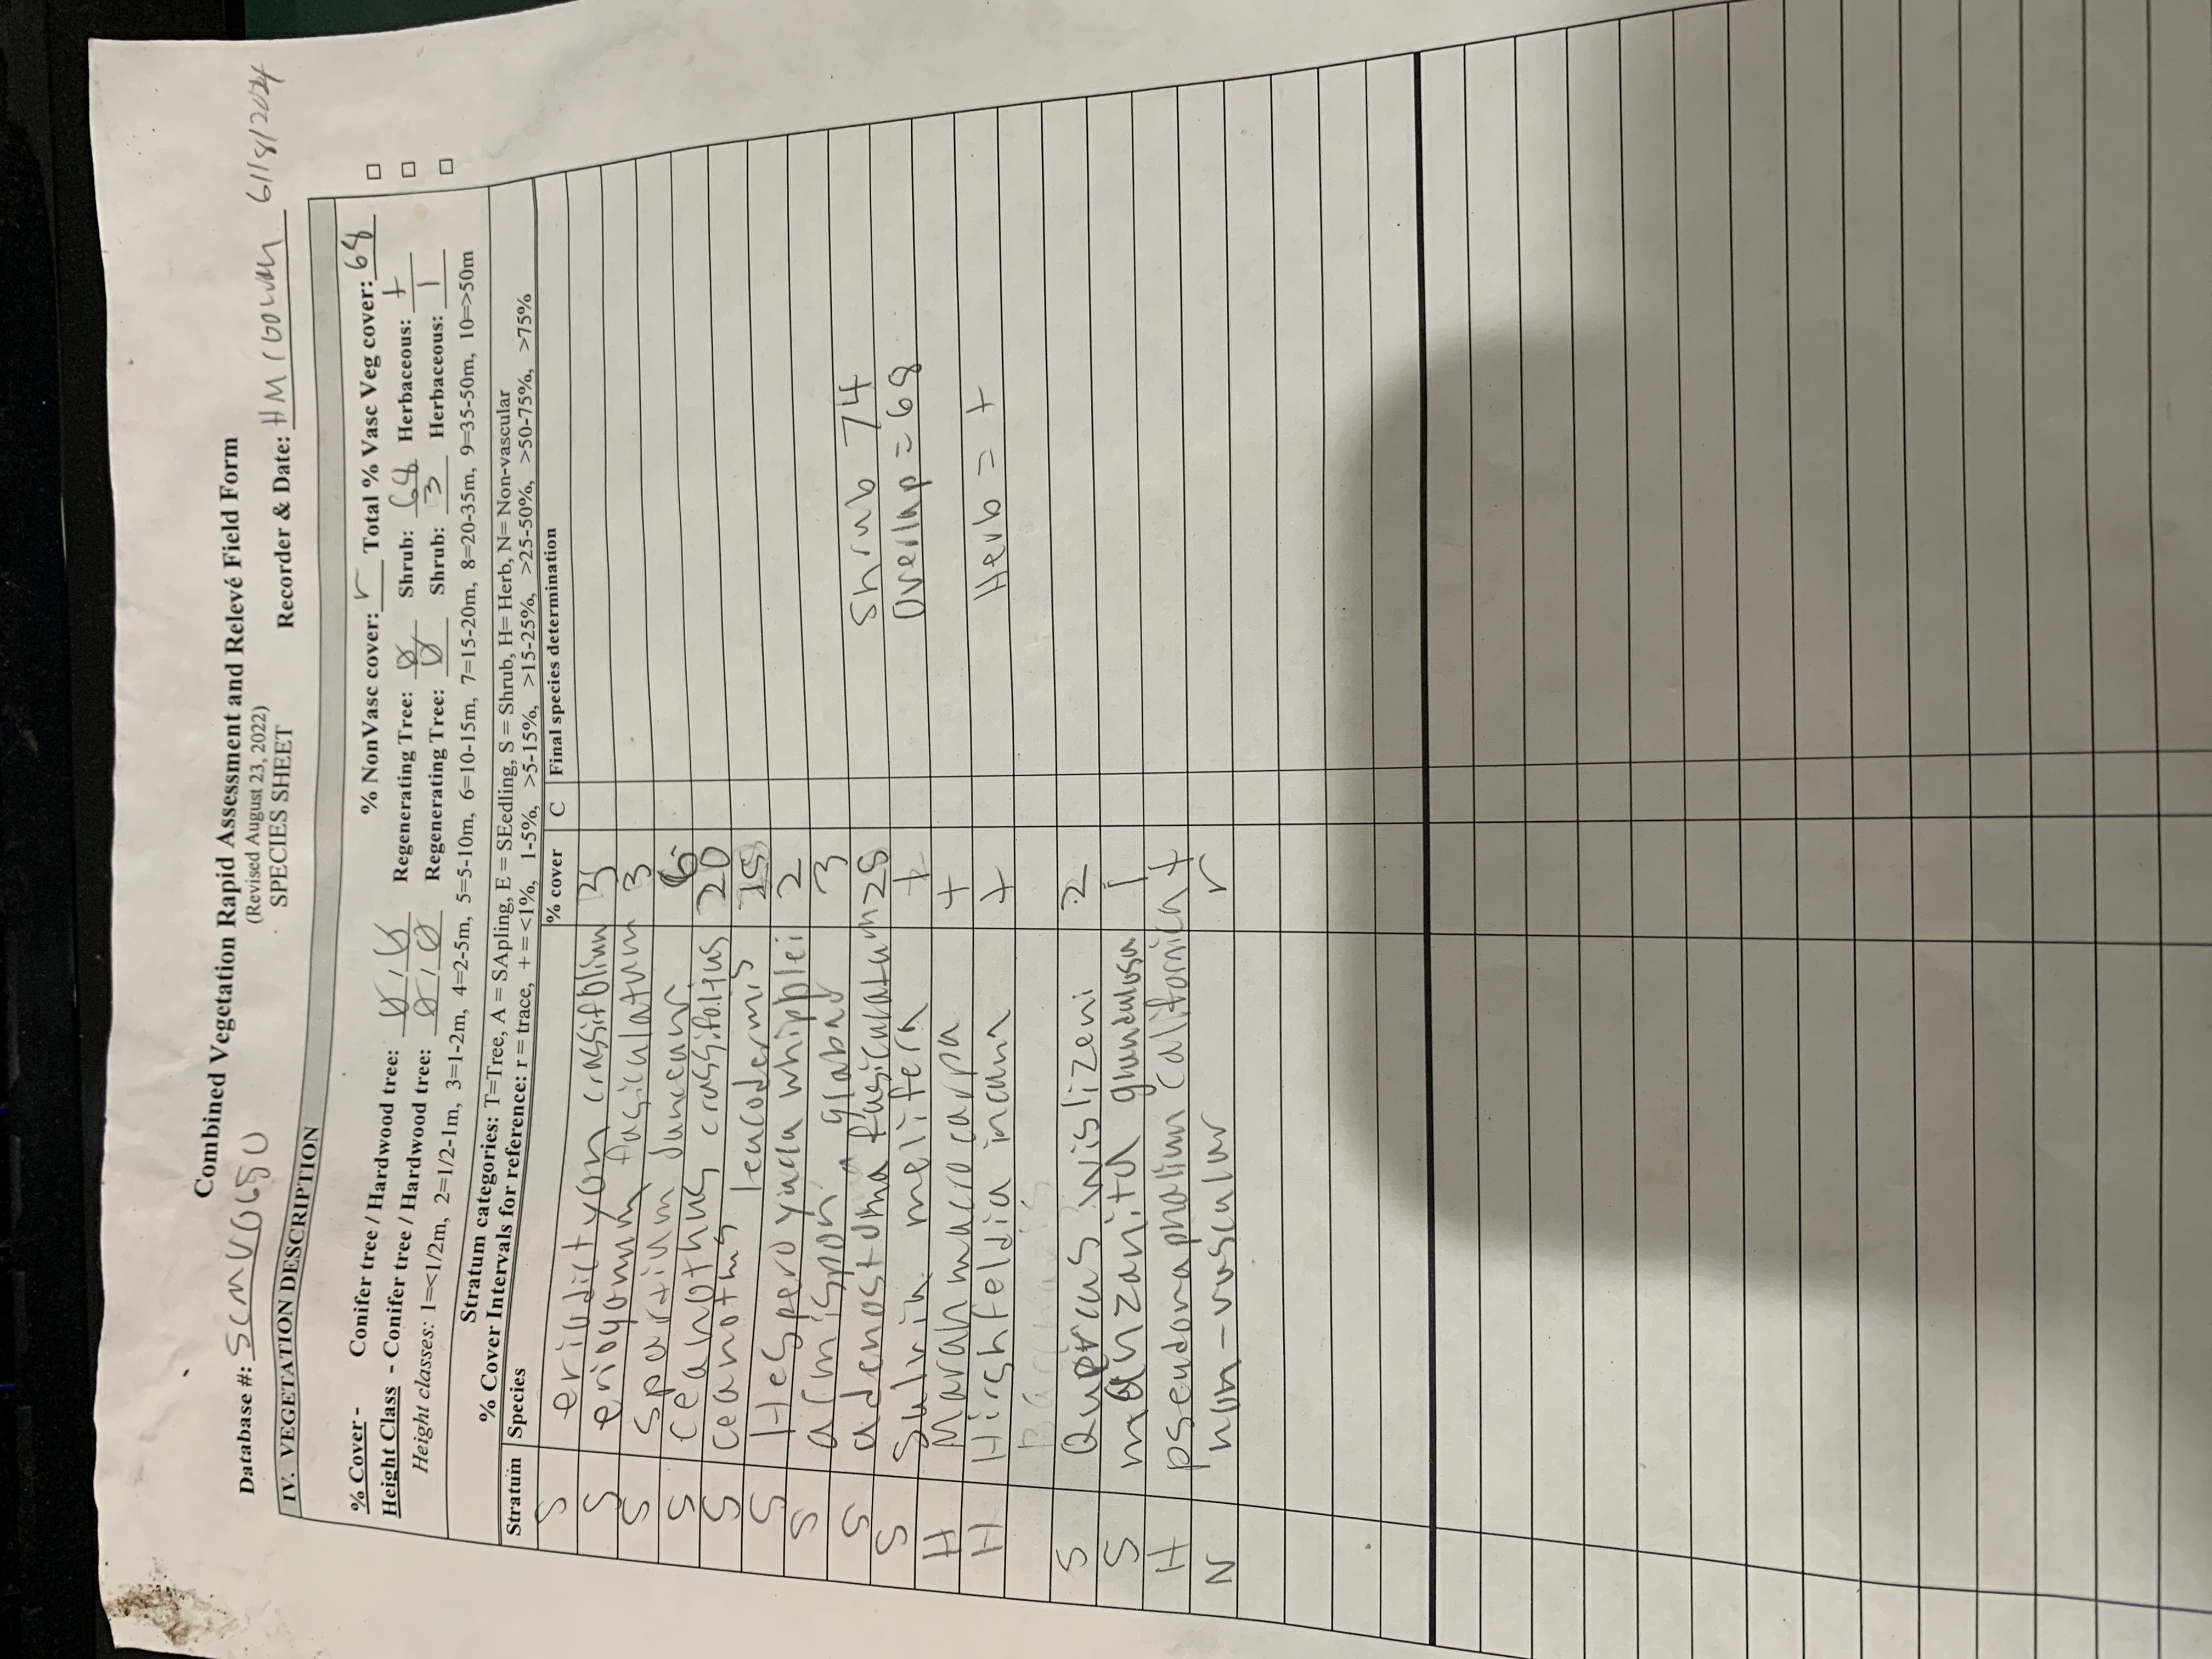 Combined Vegetation Rapid Assessment and Relevé Field Form
(Revised August 23, 2022)
SPECIES SHEET
Database #: SCMV0650 Recorder & Date: HMcGowan 6/18/2024
IV. VEGETATION DESCRIPTION
% NonVasc cover: r Total % Vasc Veg cover: 68 □
% Cover - Conifer tree / Hardwood tree: Ø / Ø Regenerating Tree: Ø Shrub: 68 Herbaceous: + □
Height Class - Conifer tree / Hardwood tree: Ø / Ø Regenerating Tree: Ø Shrub: 3 Herbaceous: 1 □
Height classes: 1=<1/2m, 2=1/2-1m, 3=1-2m, 4=2-5m, 5=5-10m, 6=10-15m, 7=15-20m, 8=20-35m, 9=35-50m, 10=>50m
Stratum categories: T=Tree, A = SApling, E = SEedling, S = Shrub, H= Herb, N= Non-vascular
% Cover Intervals for reference: r = trace, + = <1%, 1-5%, >5-15%, >15-25%, >25-50%, >50-75%, >75%
Stratum Species % cover C Final species determination
S eriodictyon crassifolium
S eriogonum fasciculatum 3
S spartium junceum 6
S ceanothus crassifolius 20
S ceanothus leucodermis
S Hesperoyucca whipplei 2
S acmispon glabar 3
S adenostoma fasiculatum 25 Shrub 74
S Salvia melifera + Overlap = 68
H Marah macrocarpa +
H Hirshfeldia incana + Herb = +
S Quercus wislizeni 2
S manzanita glandulosa 1
H pseudonaphalium californica +
N non-vascular r